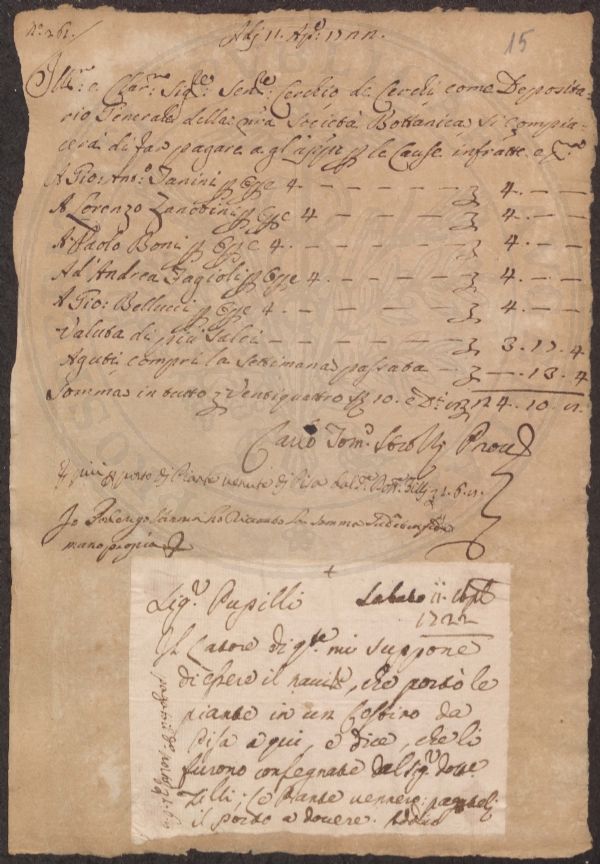 N.° 261 /
Adj 11. Ap.e 1722.
15
Ill.mo e Clar.mo Sig.re Sen.re Cerchio de Cerchi come Deposita-
rio Generale della Società Bottanica si compia-
cerà di far pagare agl'appi p le Cause infratte e
A Gio: Ant.o Janini p Opre 4. — — — — — 4. — —
A Lorenzo Zanobini p Opre 4 — — — — — 4. — —
A Paolo Boni p Opre 4. — — — — — 4. — —
Ad Andrea Fagioli p Opre 4 — — — — 4. — —
A Gio: Bellucci p Opre 4. — — — — — 4. — —
Valuta di più Salci — — — — — 3. 17. 4
Aguti compri la Settimana passata — — — 13. 4
Somma in tutto Ventiquattro 10. e 24. 10.
Carlo Tom.o Strozzi Prou
E più p porto di Piante venute di Pisa dal Dott. Tilli 1. 6.
Io ho Ricevuto la Somma Sud.
mano propria
+
Sig.r Pupilli Sabato 11.
1722
Il Latore di q.ta mi suppone
di essere il navic.o, che portò le
piante in un Cestino da
Pisa a qui, e dice, che li
furono consegnate dal Sig.r dott.e
Tilli; le Piante vennero: pagateli
il porto a dovere. Addio